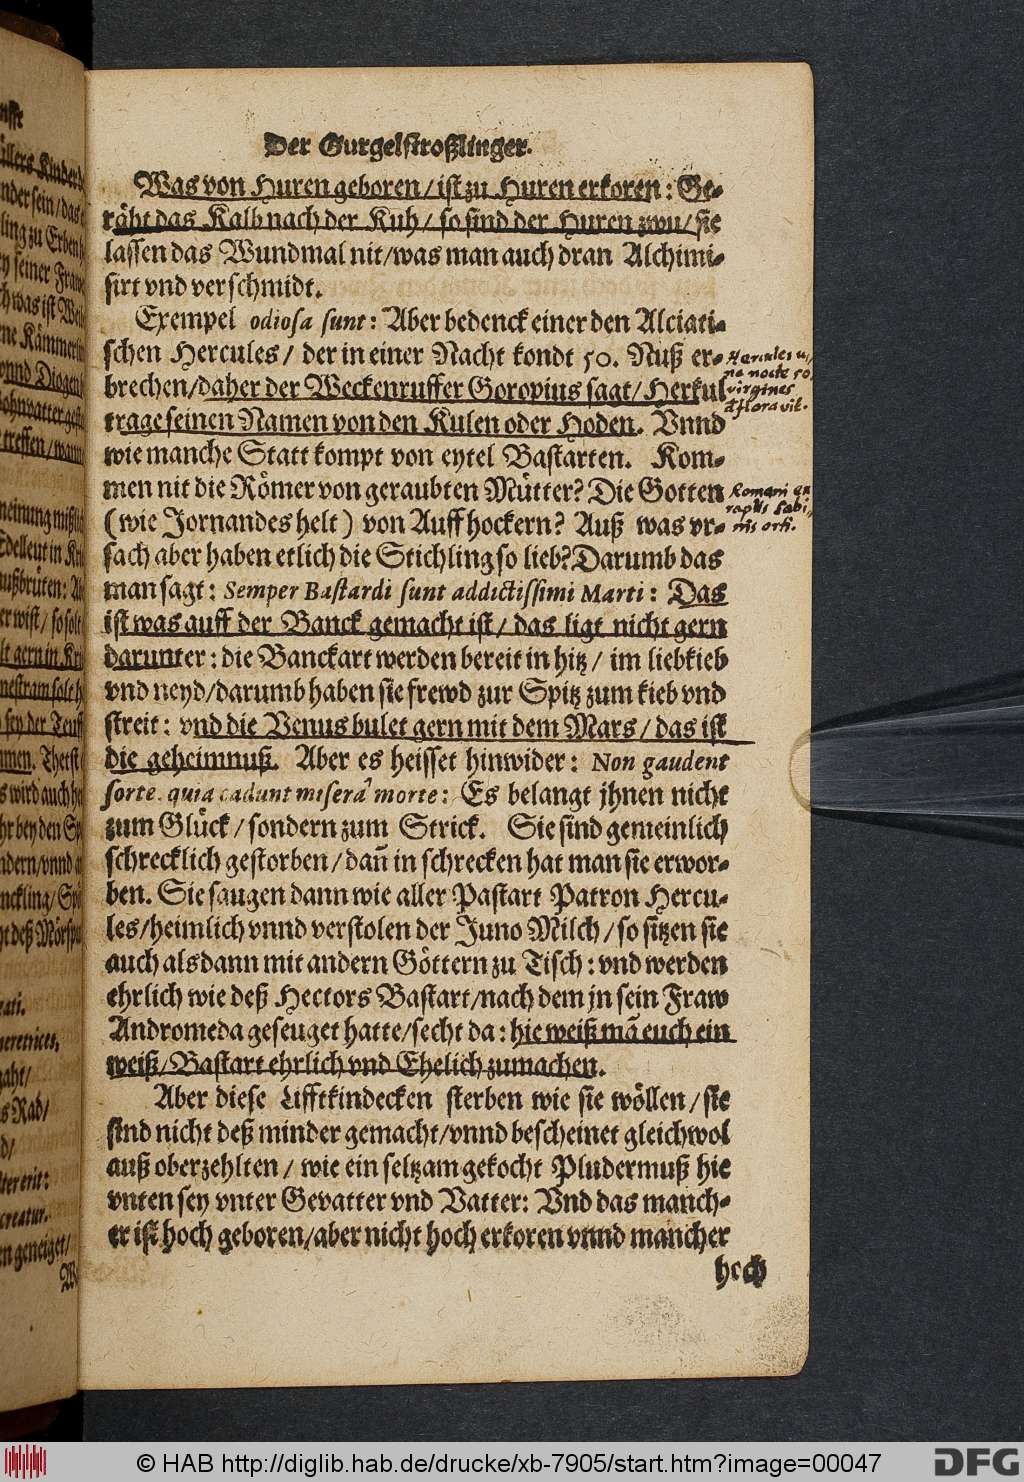 Der Gurgelstroßlinger.
Was von Huren geboren / ist zu Huren erkoren: Ge-
räht das Kalb nach der Kuh / so sind der Huren zwu / sie
lassen das Wundmal nit / was man auch dran Alchimi-
sirt vnd verschmidt.
Exempel odiosa sunt: Aber bedenck einer den Alciati-
schen Hercules / der in einer Nacht kondt 50. Nuß er-
brechen / daher der Weckenruffer Goropius sagt / Herkul
trage seinen Namen von den Kulen oder Hoden. Vnnd
wie manche Statt kompt von eytel Bastarten. Kom-
men nit die Römer von geraubten Mütter? Die Gotten
(wie Jornandes helt) von Auffhockern? Auß was vr-
sach aber haben etlich die Stichling so lieb? Darumb das
man sagt: Semper Bastardi sunt addictissimi Marti: Das
ist was auff der Banck gemacht ist / das ligt nicht gern
darunter: die Banckart werden bereit in hitz / im liebkieb
vnd neyd / darumb haben sie frewd zur Spitz zum kieb vnd
streit: vnd die Venus bulet gern mit dem Mars / das ist
die geheimnuß. Aber es heisset hinwider: Non gaudent
sorte, quia cadunt misera morte: Es belangt jhnen nicht
zum Glück / sondern zum Strick. Sie sind gemeinlich
schrecklich gestorben / dañ in schrecken hat man sie erwor-
ben. Sie saugen dann wie aller Pastart Patron Hercu-
les / heimlich vnnd verstolen der Juno Milch / so sitzen sie
auch alsdann mit andern Göttern zu Tisch: vnd werden
ehrlich wie deß Hectors Bastart / nach dem jn sein Fraw
Andromeda geseuget hatte / secht da: hie weiß mã euch ein
weiß / Bastart ehrlich vnd Ehelich zumachen.
Aber diese Lifftkindecken sterben wie sie wöllen / sie
sind nicht deß minder gemacht / vnnd bescheinet gleichwol
auß oberzehlten / wie ein seltzam gekocht Pludermuß hie
vnten sey vnter Gevatter vnd Vatter: Vnd das manch-
er ist hoch geboren / aber nicht hoch erkoren vnnd mancher
hoch
Hercules u-
na nocte 50
virgines
defloravit.
Romani ex
raptis Sabi-
nis orti.
© HAB http://diglib.hab.de/drucke/xb-7905/start.htm?image=00047
DFG